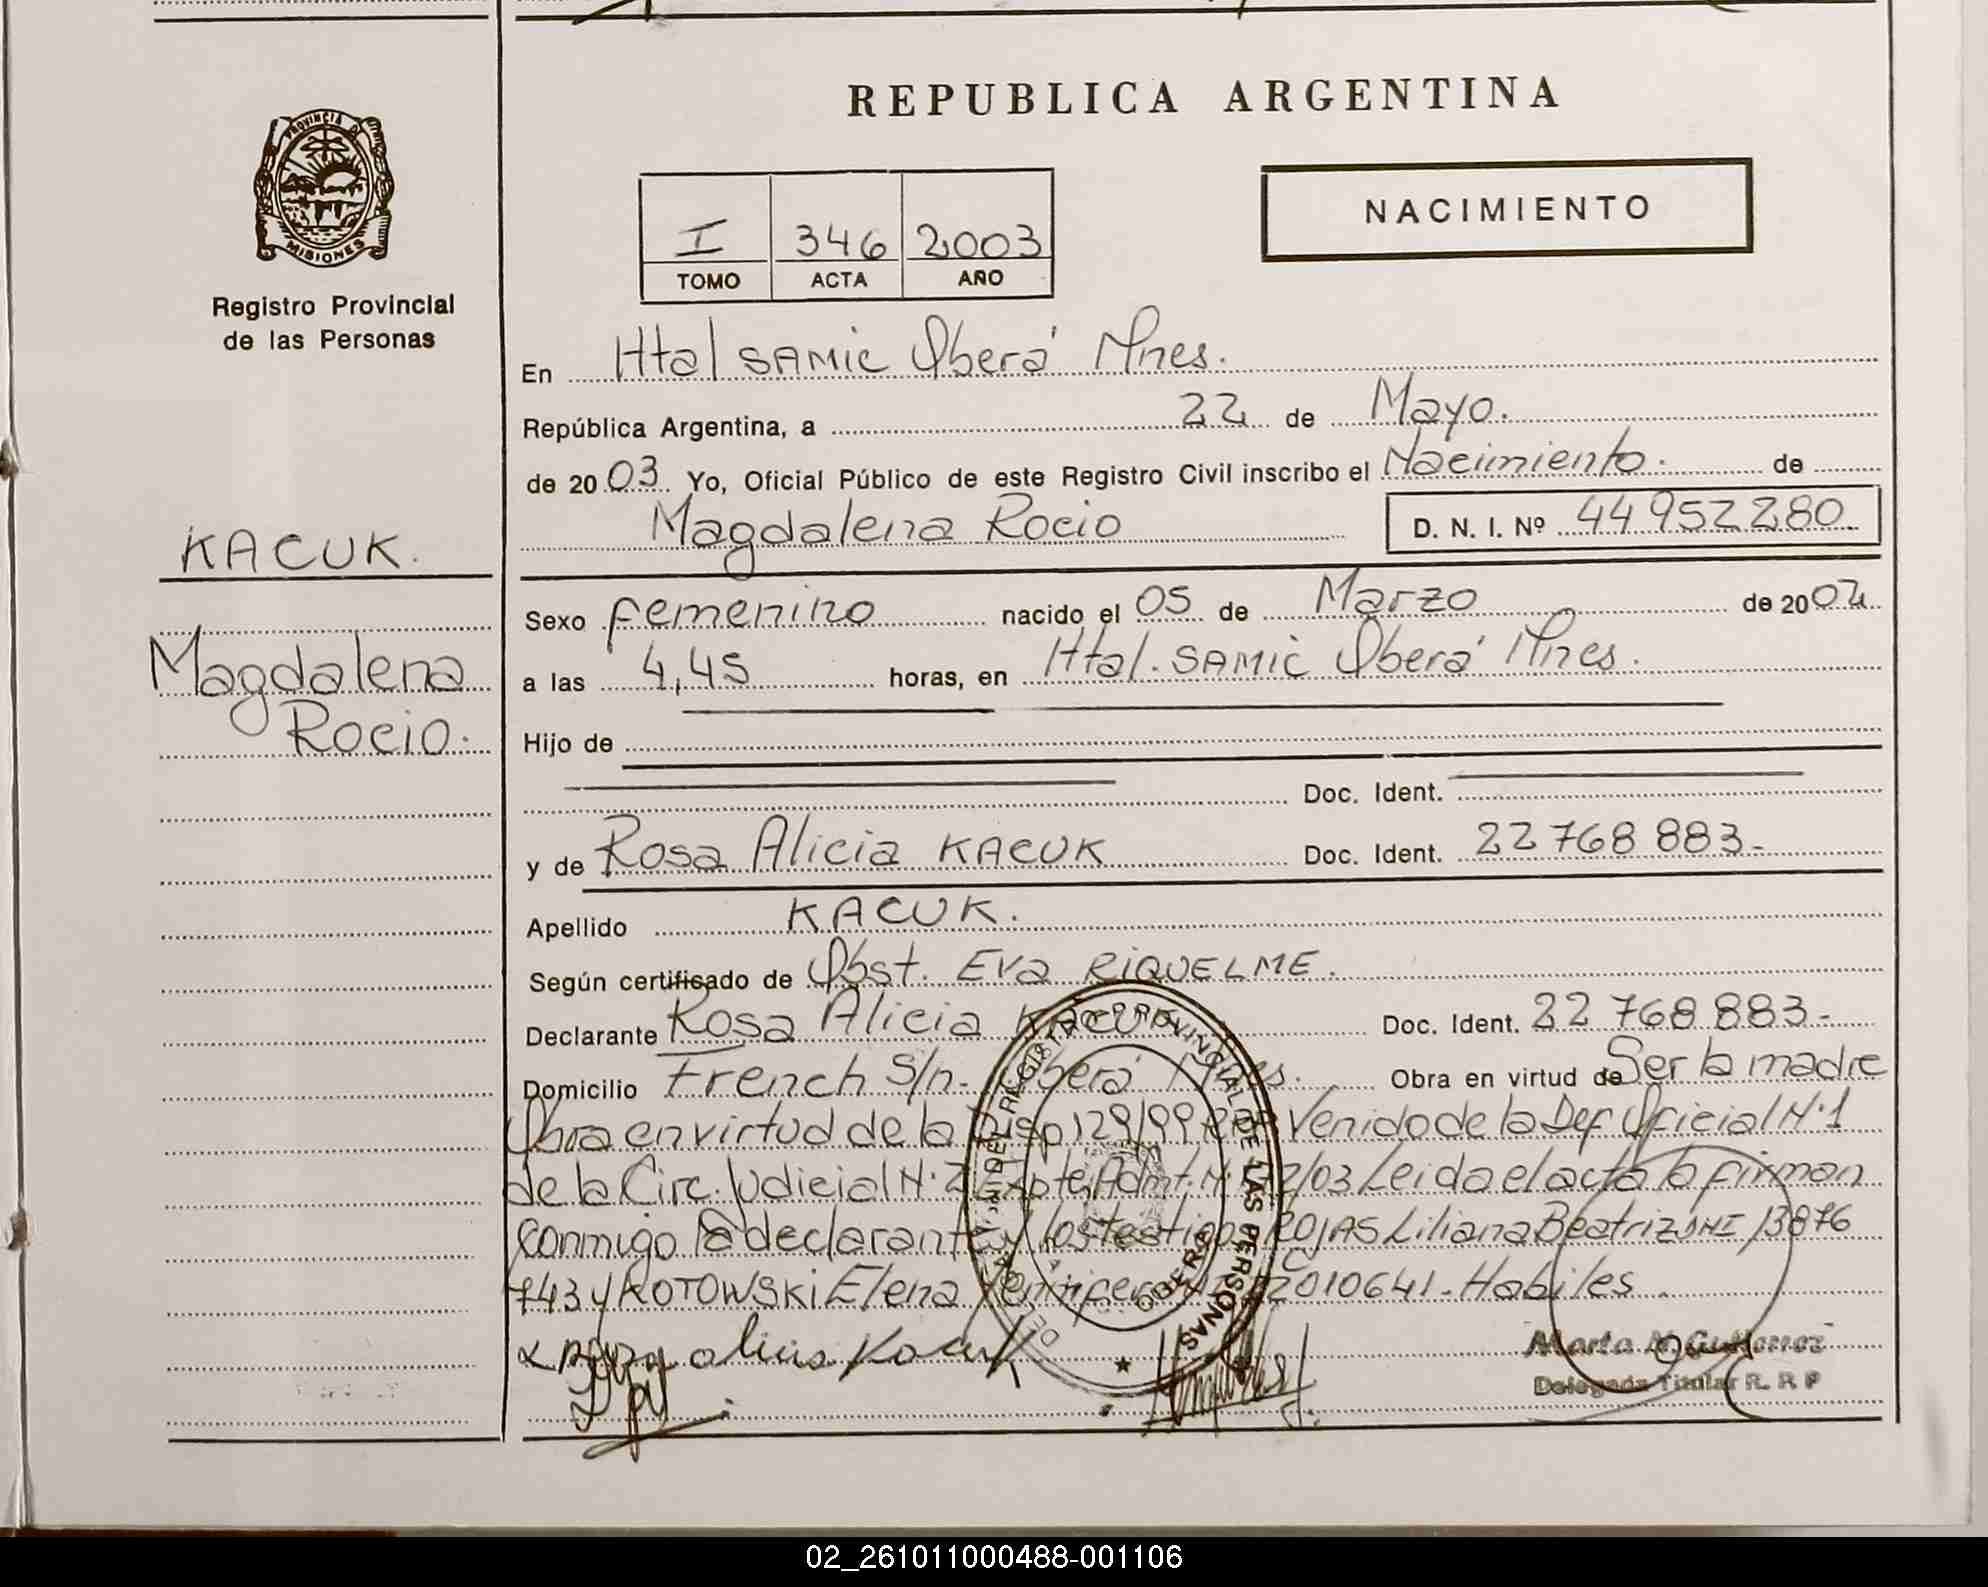 REPUBLICA ARGENTINA
PROVINCIA DE
MISIONES
Registro Provincial
de las Personas
I 346 2003
TOMO ACTA AÑO
NACIMIENTO
En Htal SAMIC Oberá Mnes.
República Argentina, a 22 de Mayo.
de 2003 Yo, Oficial Público de este Registro Civil inscribo el Nacimiento. de
Magdalena Rocio D. N. I. Nº 44952280
KACUK.
Magdalena
Rocio.
Sexo femenino nacido el 05 de Marzo de 2002
a las 4,45 horas, en Htal. SAMIC Oberá Mnes.
Hijo de
Doc. Ident.
y de Rosa Alicia KACUK Doc. Ident. 22768883-
Apellido KACUK.
Según certificado de Obst. Eva RIQUELME.
Declarante Rosa Alicia KACUK Doc. Ident. 22768883-
Domicilio French S/n- Oberá Mnes. Obra en virtud de Ser la madre
Obra en virtud de la Disp 129/99 Venido de la Def Oficial Nº1
de la Circ. Judicial Nº2 Expte, Admt. Nº /03 Leido el acta la firman
conmigo la declarante y los testigos ROJAS Liliana Beatriz DNI 13876
743 y KOTOWSKI Elena 22010641- Habiles
Rosa alicia Kacuk
Marta N. Gutierrez
Delegada Titular R. R P
REGISTRO PROVINCIAL DE LAS PERSONAS
OBERA
02_261011000488-001106